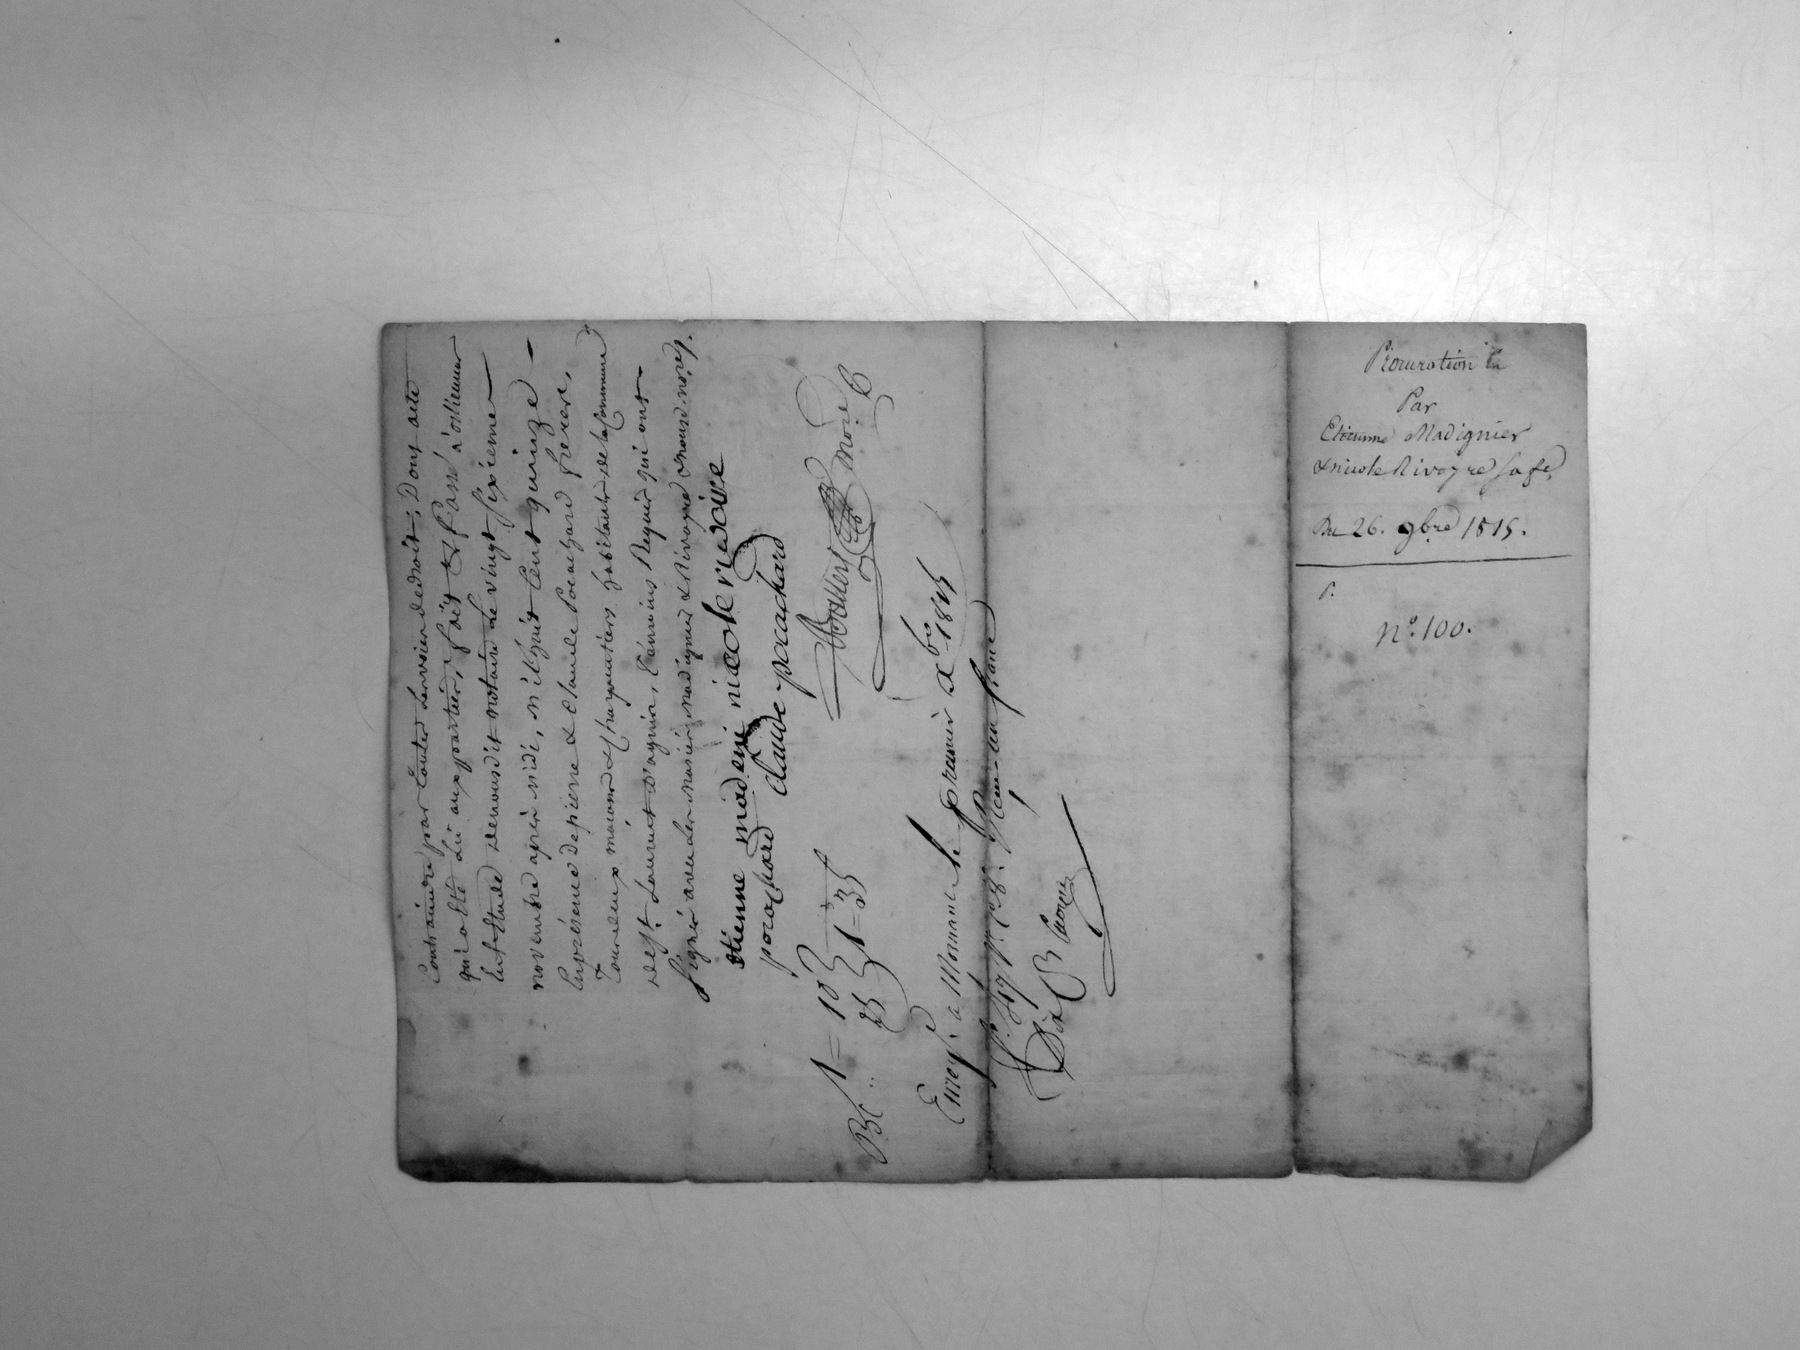 contraindre par toutes les voies de droit; Dont acte
qui a été lu aux parties, fait & passé à orlienas
En l'étude de nousdit notaire Le vingt sixieme
novembre après midi, mil huit Cent quinze
En présence de pierre & Claude Pocachard freres,
Tous deux maçons & charpentiers habitants de la Commune
de St. Laurent D'agnis, témoins Requis qui ont
signé avec Les mariés Madignier & Rivoyre & nous no.re
étienne madenié nicole revoire
pocachard claude pocachard
1 = 10
25
1 = 35
Enreg.é à Mornant le premier Xbre 1815
Reçu un franc
Procuration
Par
Etienne Madignier
& nicole Rivoyre sa fe.
Du 26. 9bre 1815.
P.
N.o 100.